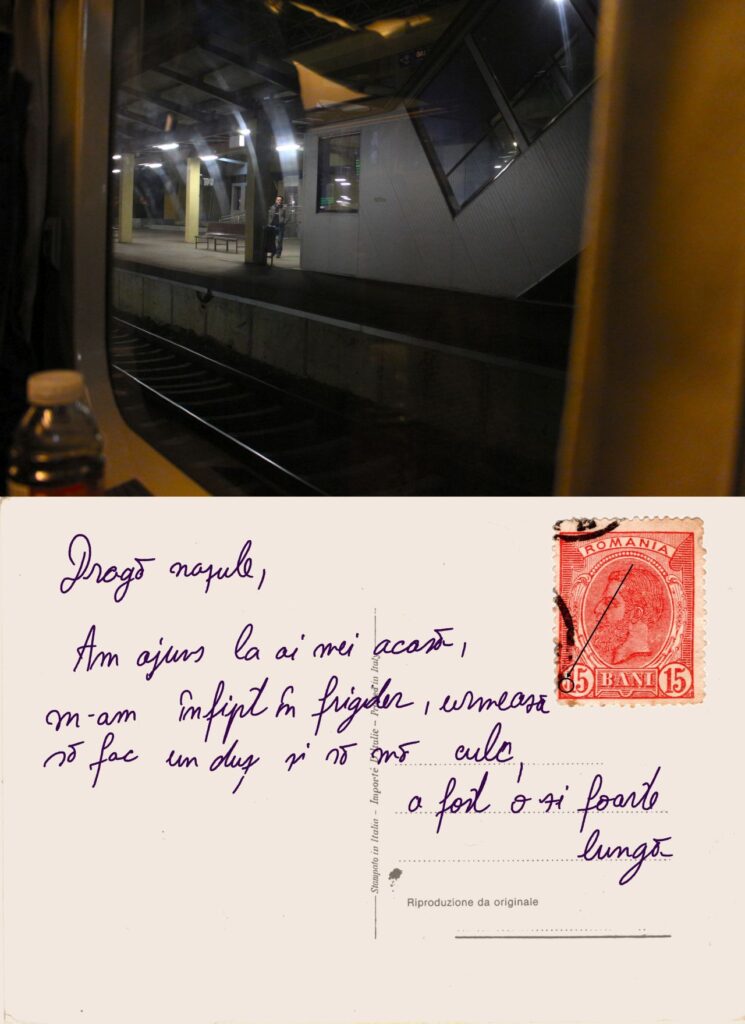 ROMANIA
15 BANI 15
Dragă nașule,
Am ajuns la ai mei acasă,
m-am înfipt în frigider, urmează
să fac un duș și să mă culc,
a fost o zi foarte
lungă
Stampato in Italia - Importé d'Italie - Printed in Italy
Riproduzione da originale